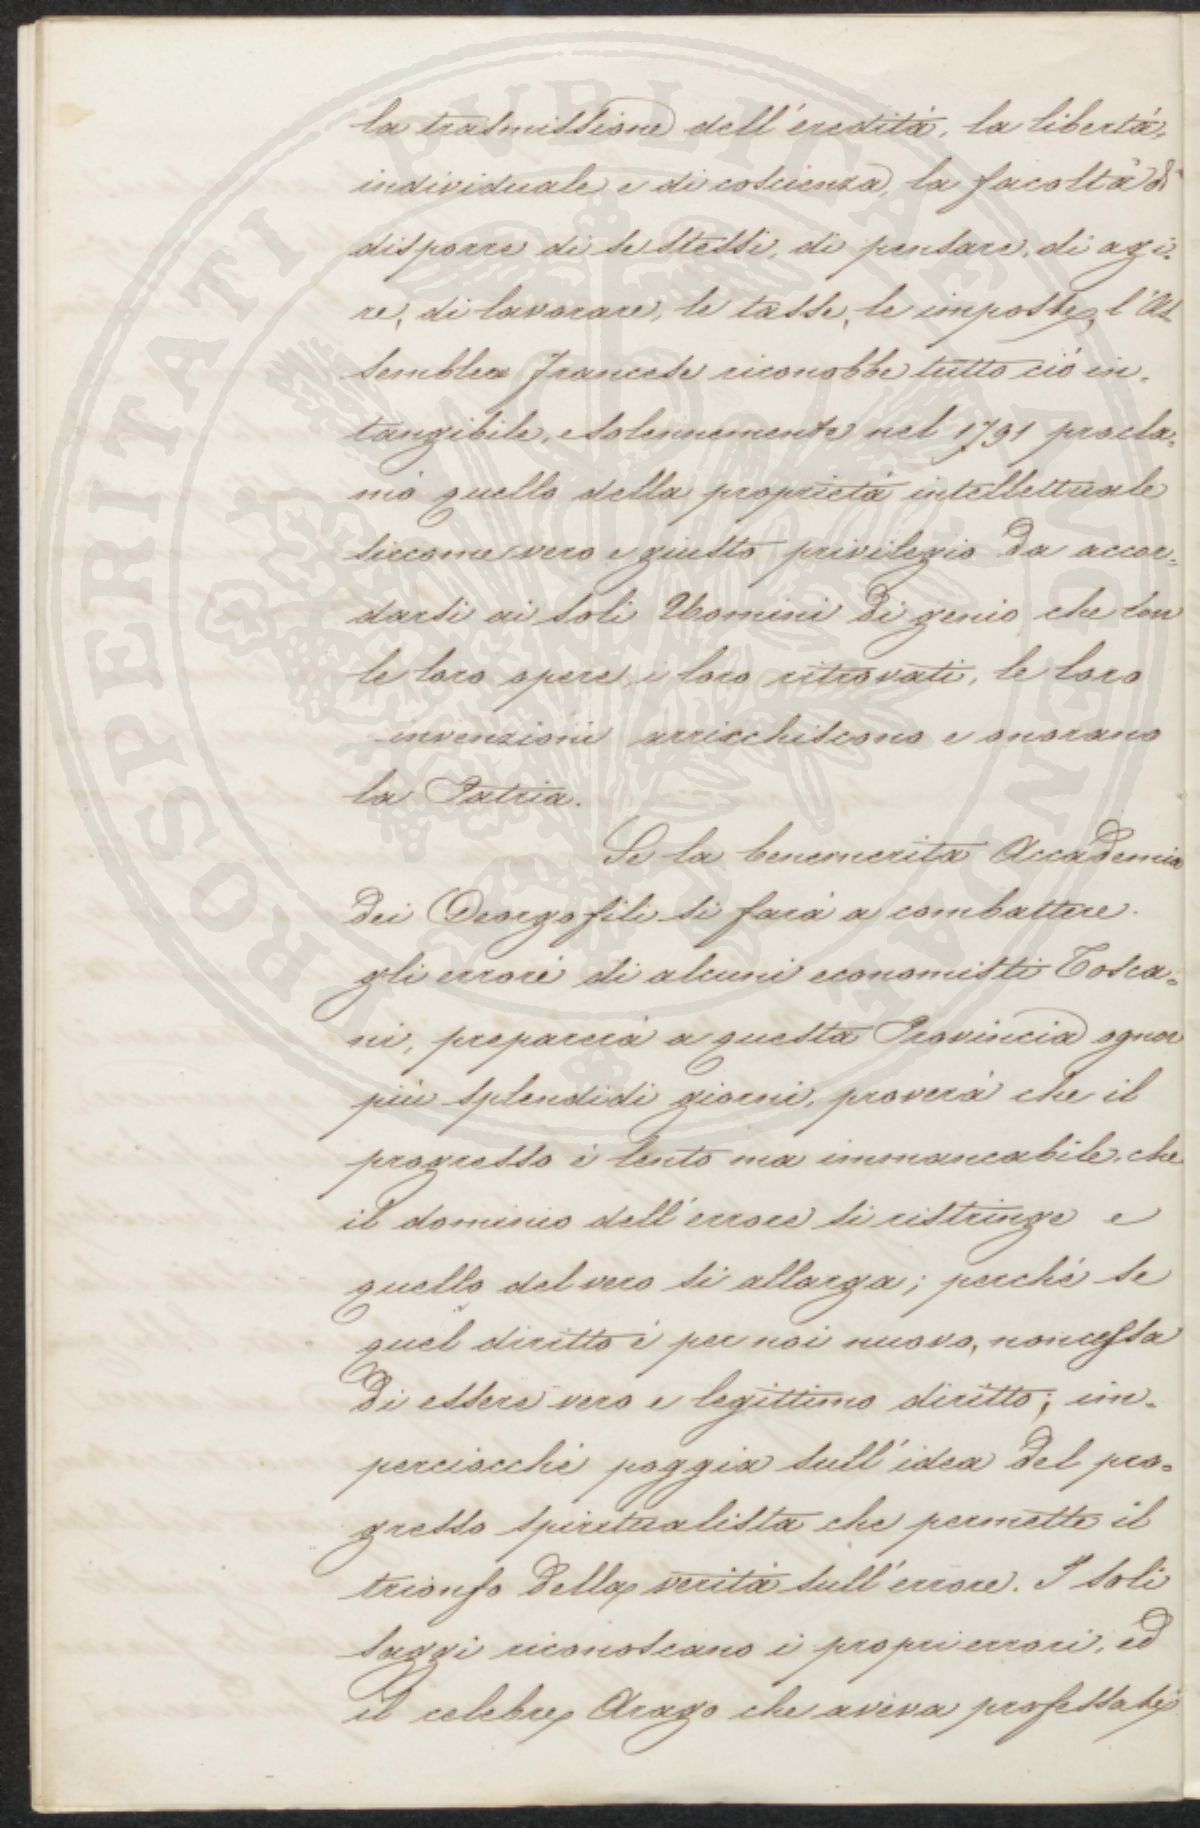 la trasmissione dell'eredità, la libertà,
individuale e di coscienza, la facoltà di
disporre di se stessi, di pensare, di agi-
re, di lavorare, le tasse, le imposte, l'As
semblea Francese riconobbe tutto ciò in-
tangibile, e solennemente nel 1791 procla-
mò quello della proprietà intellettuale
siccome vero e giusto privilegio da accor-
darsi ai soli Uomini di genio che con
le loro opere i loro ritrovati, le loro
invenzioni arricchiscono e onorano
la Patria.
Se la benemerita Accademia
dei Georgofili si farà a combattere
gli errori di alcuni economisti Tosca-
ni, preparerà a questa Provincia ognor
più splendidi giorni, proverà che il
progresso è lento ma immancabile, che
il dominio dell'errore si ristringe e
quello del vero si allarga; perché se
quel diritto è per noi nuovo, non cessa
di essere vero e legittimo diritto; im-
perciocché poggia sull'idea del pro-
gresso spiritualista che permette il
trionfo della verità sull'errore. I soli
saggi riconoscano i propri errori, ed
il celebre Arago che aveva professate
PROSPERITATI PUBLICAE AUGENDAE